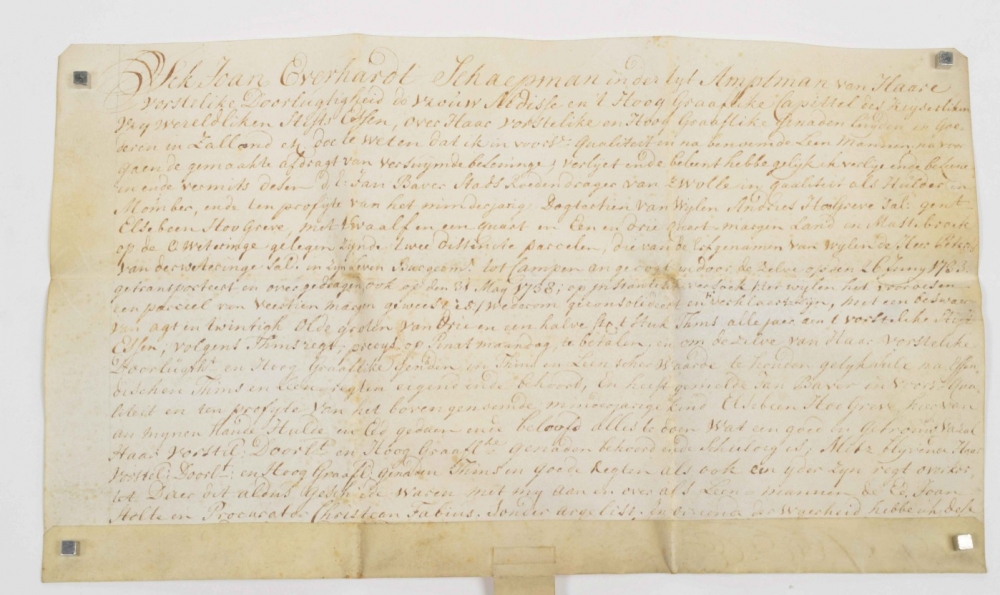 Ick Joan Everhardt Schaepman inder tyt Amptman van Haare
Vorstelike Doorlugtigheid de Vrouw Abdisse en 't Hoog Graaflike Capittel des Keyserliken
vry wereldliken Stigts Essen, over Haar Vorstelike en Hoog Graaflike Genaden luyden en Goe
deren in Zalland etc. doe te weten dat ik in voors: qualiteit en na benoemde Leen Mannen, na voor
gaende gemaakte opdragt van versuymde beleninge, verlyet ende beleent hebbe gelyk ik verlye ende belene
in ende vermits desen d' E: Jan Baver Stads Roedendrager van Zwolle in qualiteit als Hulder en
Momber, ende ten profyte van het minderjarig Dogtertien van Wylen Andries Hovgreve Zal: gent
Elsebeen Hov Greve, met twaalf en een quart en Een en drie quart margen Land in Mastebroek
op de Weteringe gelegen zynde twee distincte parcelen, die van de Erfgenamen van wylen de Heer
van der Weteringe Sal: in zyn leven Burgerm: tot Campen angekogt en door de zelve op den 26 Juny
getransporteert en overgedragen ook op den 31 May 1758, op instantie en versoek
een parceel van veertien margen geweest, wederom geconsolideert en verklaert zyn, met een beswaer
van agt en twintigh olde groten van drie en een halve stuk Thins alle jaer an 't vorstelike Stigt
Essen, volgens Thinsregt precys op Sinat maandag te betalen, en om dezelve van Haar Vorstelike
Doorlught: en Hoog Graaflike Genaden in Thins en Leenschen Waarde te houden gelyk
dischen Thins en Leen regten eigenende behoort, En heeft gemelde Jan Baver in voors: Qua
liteit en ten profyte van het bovengenoemde minderjarige kind Elsebeen Hov Greve, hier van
an mynen hande Hulde en Eed gedaen ende belooft alles te doen Wat een goed en Getrouw Vasal
Haar Vorstel: Doorl: en Hoog Graafl: Genaden behoord ende schuldig is; Mits blyvende Haar
Vorstel: Doorl: en Hoog Graafl: genaden Thins en goede Regten als ook een yder zyn regt
tot Daer dit aldus geschiede waren met my aan en over als Leen mannen de E: Joan
Holte en Procurator Christiaan Fabius. Sonder argelist, en